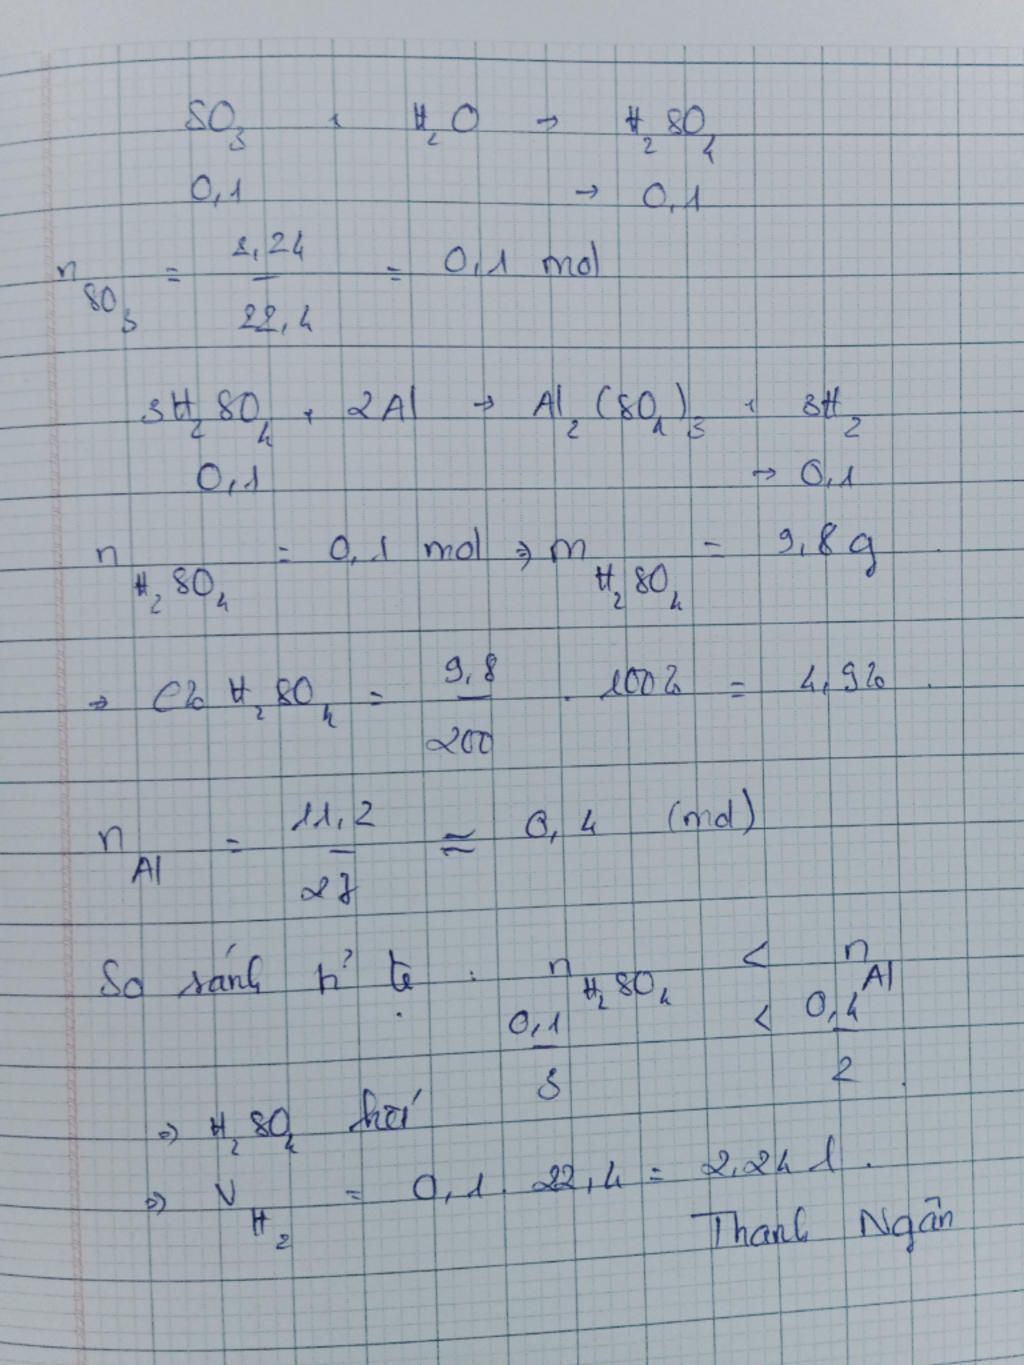 SO3 + H2O → H2SO4
0,1 → 0,1
nSO3 = 2,24/22,4 = 0,1 mol
3H2SO4 + 2Al → Al2(SO4)3 + 3H2
0,1 → 0,1
nH2SO4 = 0,1 mol ⇒ mH2SO4 = 9,8g
→ C% H2SO4 = 9,8/200 . 100% = 4,9%.
nAl = 11,2/27 ≈ 0,4 (mol)
So sánh tỉ lệ : nH2SO4 < nAl
0,1/3 < 0,4/2
⇒ H2SO4 hết
⇒ VH2 = 0,1 . 22,4 = 2,24 l.
Thanh Ngân